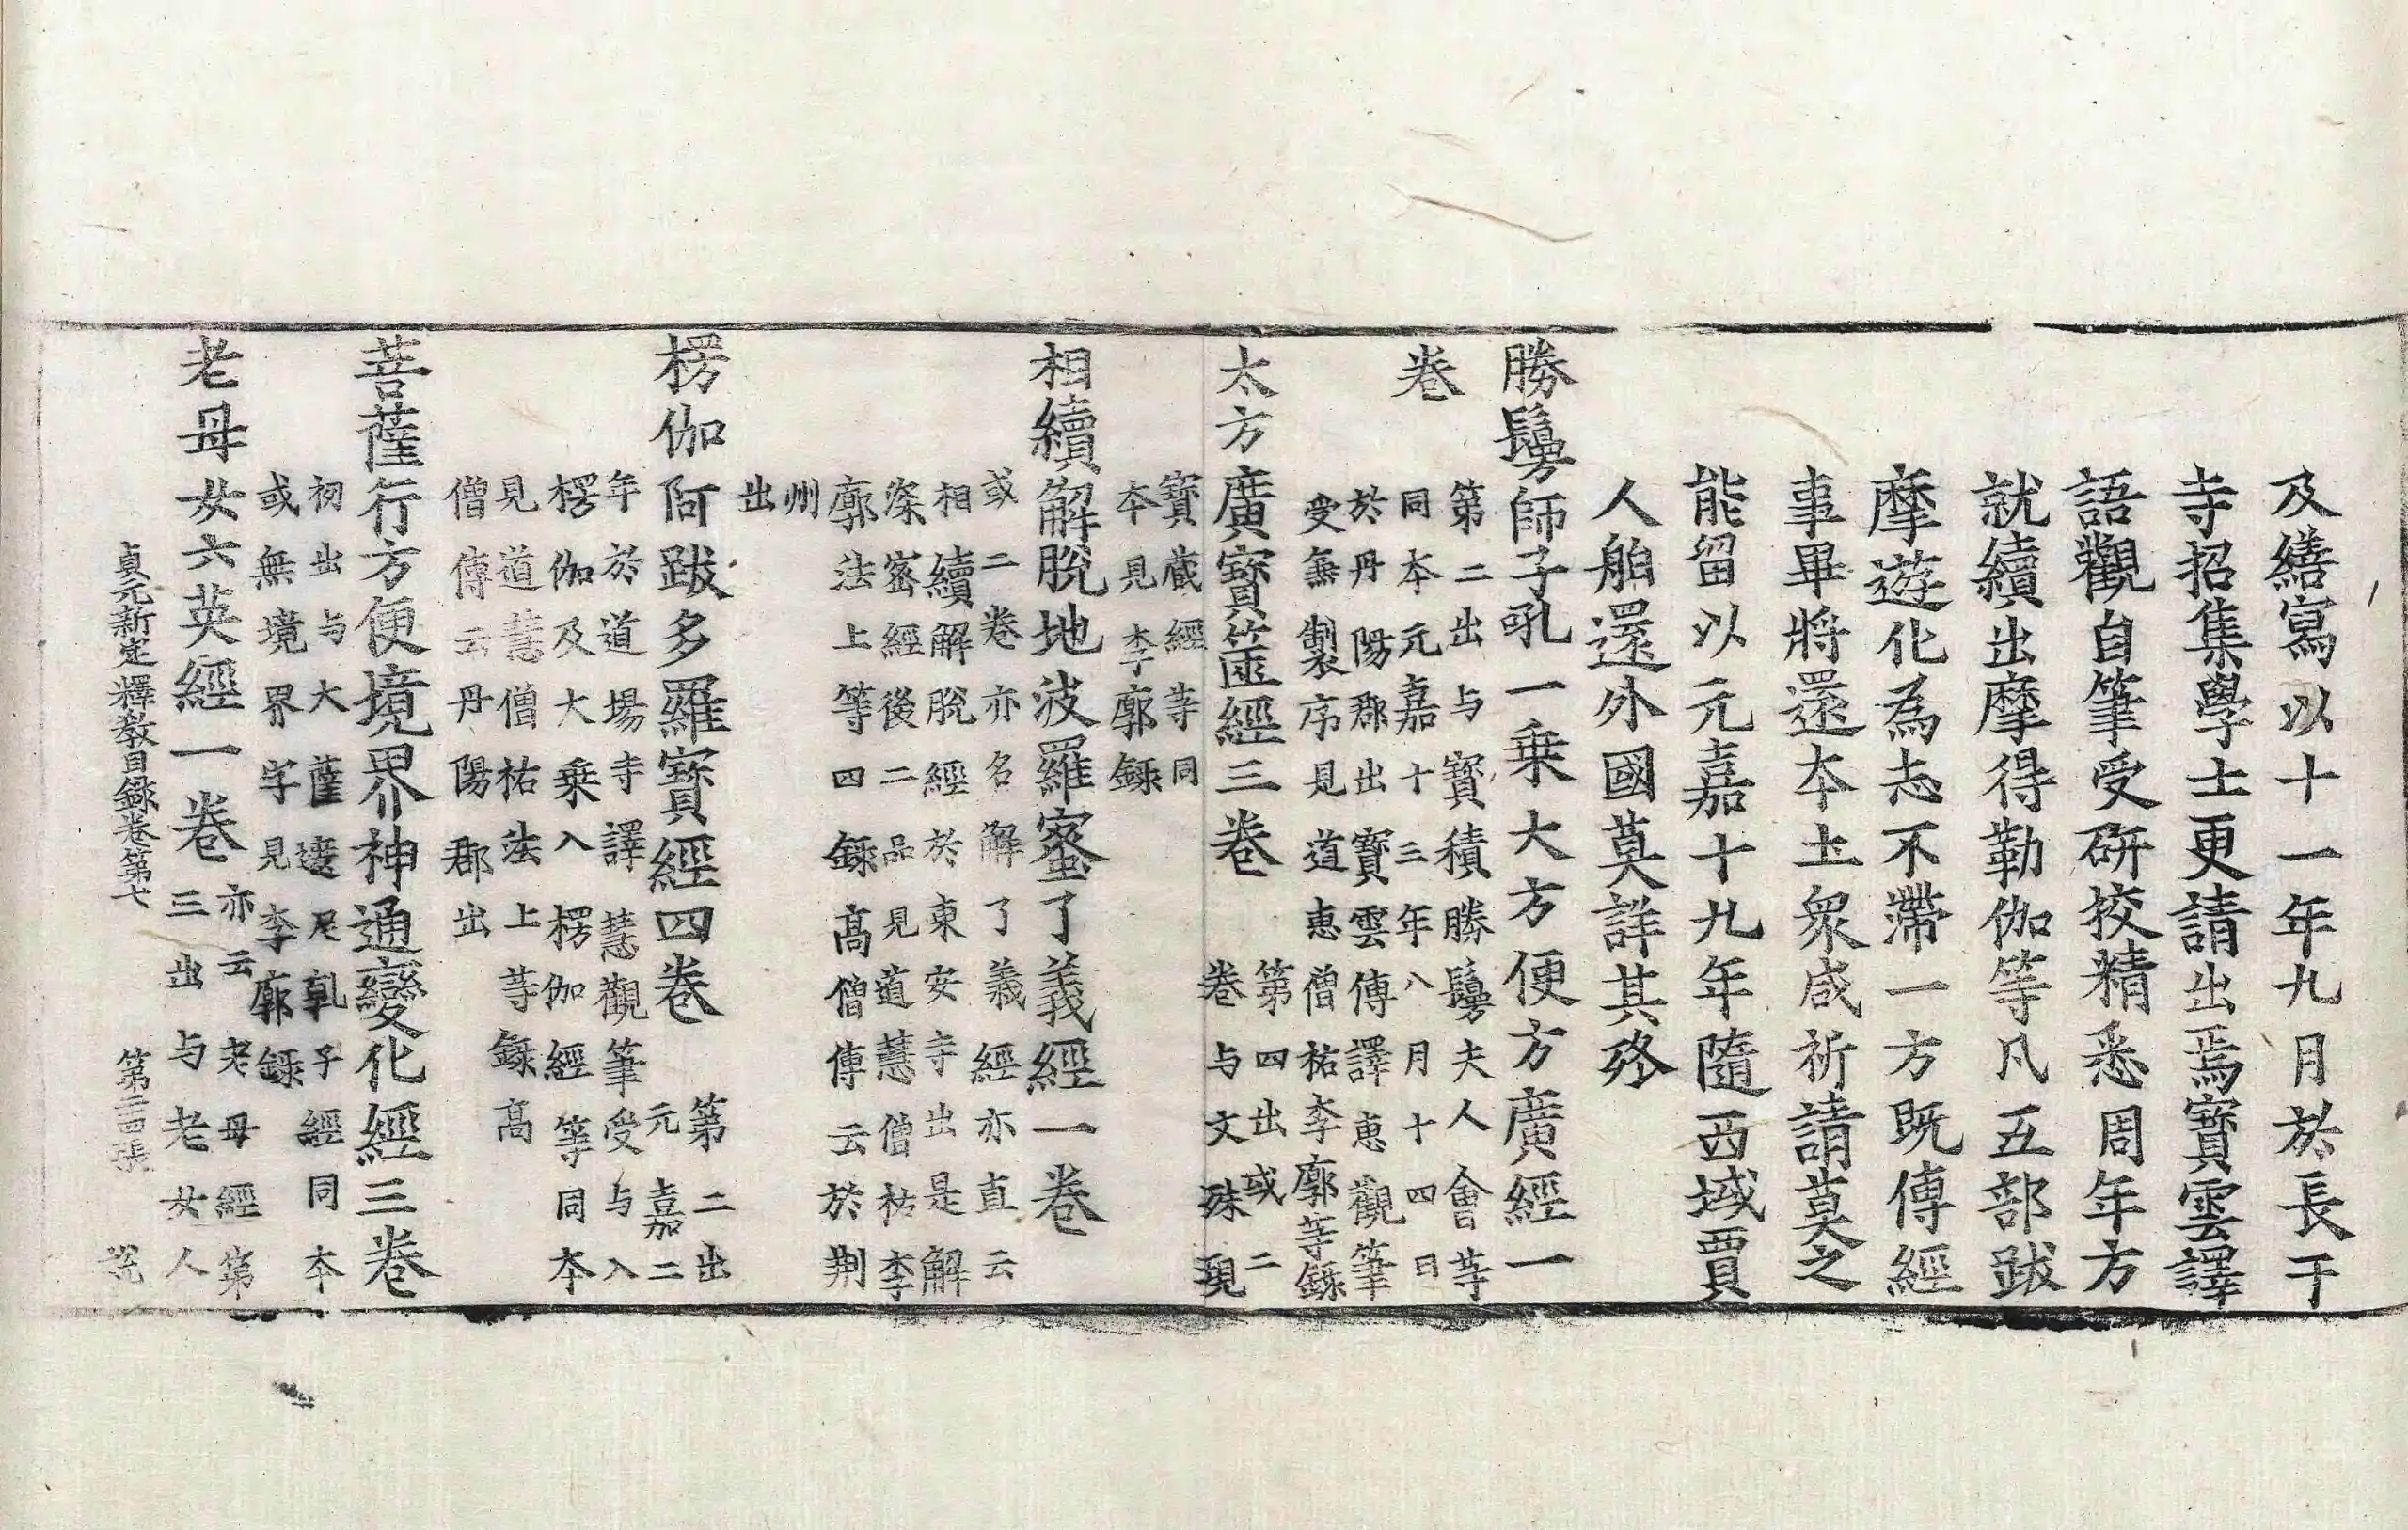 及繕寫以十一年九月於長干
寺招集學士更請出焉寶雲譯
語觀自筆受研挍精悉周年方
就續出摩得勒伽等凡五部跋
摩遊化為志不滯一方既傳經
事畢將還本土衆咸祈請莫之
能留以元嘉十九年隨西域賈
人舶還外國莫詳其終
勝鬘師子吼一乗大方便方廣經一
卷
第二出与寶積勝鬘夫人會䓁
同本元嘉十三年八月十四日
於丹陽郡出寶雲傳譯恵觀筆
受無製序見道恵僧祐李廓等錄
太方廣寶篋經三卷
第四出或二
卷与文殊現
寶蔵經䓁同
本見李廓錄
相續解脫地波羅蜜了義經一卷
或二卷亦名解了義經亦直云
相續解脫經於東安寺出是解
深密經後二品見道慧僧祐李
廓法上等四錄髙僧傳云於荆
州
出
楞伽阿跋多羅寶經四卷
第二出
元嘉二
年於道場寺譯慧觀筆受与入
楞伽及大乗入楞伽經等同本
見道慧僧祐法上䓁錄髙
僧傳云丹陽郡出
菩薩行方便境界神通變化經三卷
初出与大薩遮尼乹子經同本
或無境界字見李廓錄
老母女六英經一卷
亦云老母經第
三出与老女人
貞元新定釋教目錄卷第七 第二四張